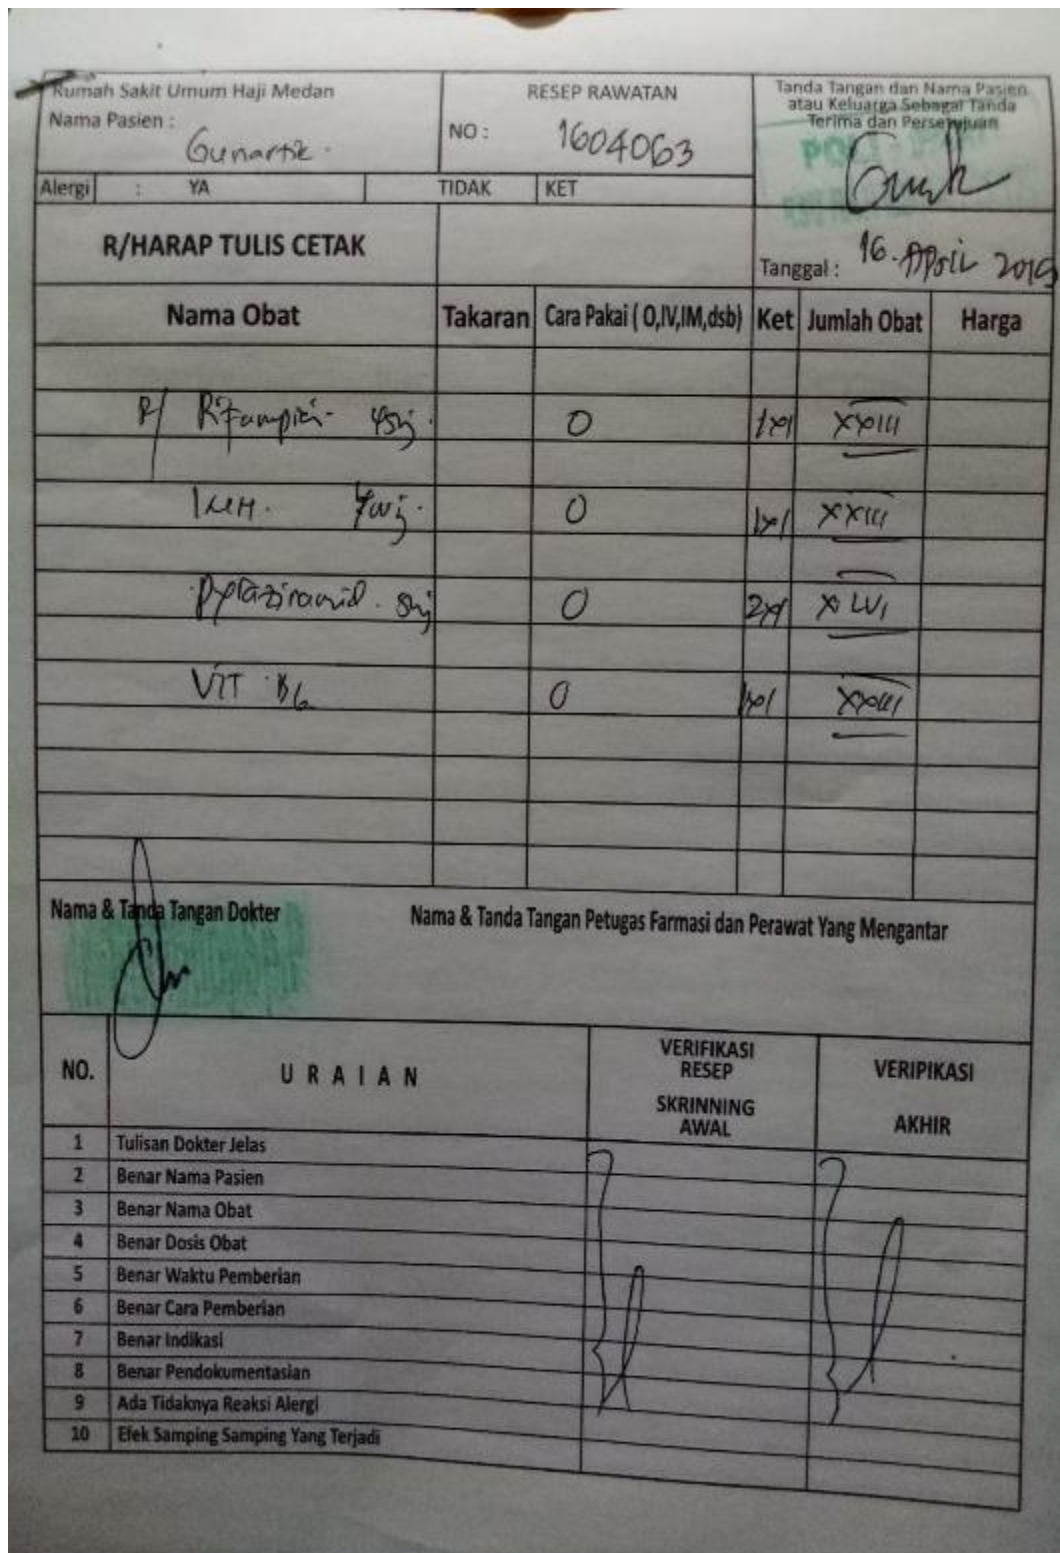 Rumah Sakit Umum Haji Medan
Nama Pasien :
Gunartik
RESEP RAWATAN
NO : 1604063
Tanda Tangan dan Nama Pasien
atau Keluarga Sebagai Tanda
Terima dan Persetujuan
Alergi : YA TIDAK KET
R/HARAP TULIS CETAK
Tanggal : 16. April 2019
Nama Obat Takaran Cara Pakai ( O,IV,IM,dsb) Ket Jumlah Obat Harga
R/ Rifampicin 450 O 1x1 XXIII
INH. O 1x1 XXIII
Pyrazinamid O 2x1 XLVI
VIT B6 O 1x1 XXIII
Nama & Tanda Tangan Dokter Nama & Tanda Tangan Petugas Farmasi dan Perawat Yang Mengantar
NO. URAIAN
VERIFIKASI
RESEP
SKRINNING
AWAL
VERIPIKASI
AKHIR
1 Tulisan Dokter Jelas
2 Benar Nama Pasien
3 Benar Nama Obat
4 Benar Dosis Obat
5 Benar Waktu Pemberian
6 Benar Cara Pemberian
7 Benar Indikasi
8 Benar Pendokumentasian
9 Ada Tidaknya Reaksi Alergi
10 Efek Samping Samping Yang Terjadi